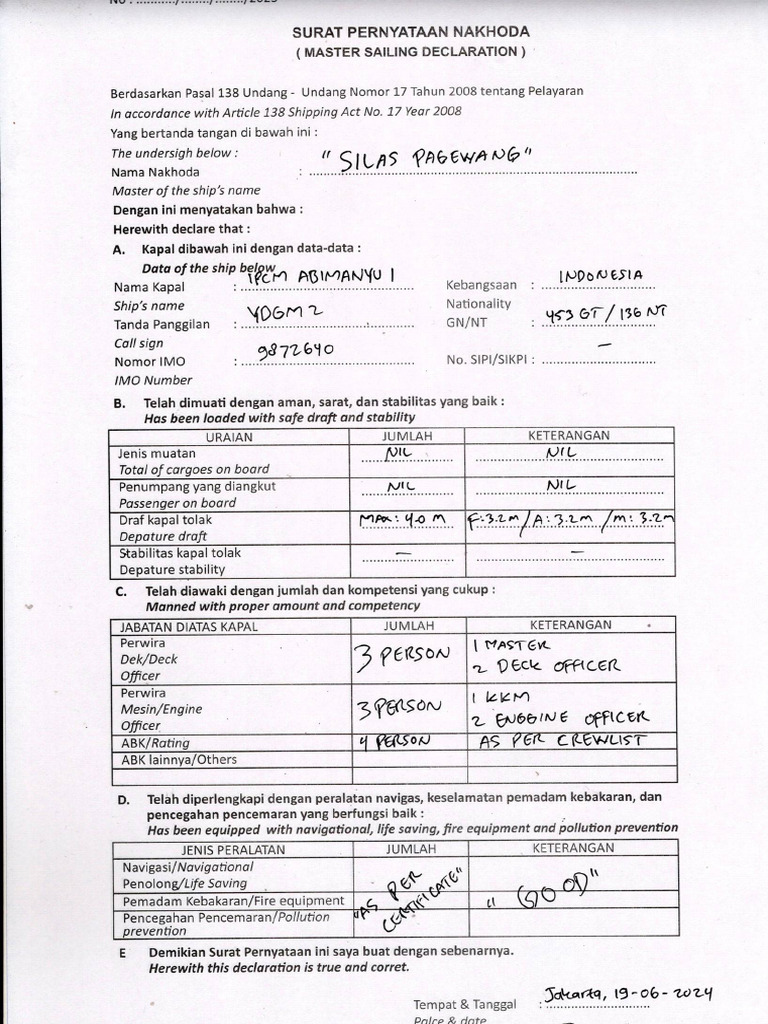 No : .........../......../......../2023
SURAT PERNYATAAN NAKHODA
( MASTER SAILING DECLARATION )
Berdasarkan Pasal 138 Undang - Undang Nomor 17 Tahun 2008 tentang Pelayaran
In accordance with Article 138 Shipping Act No. 17 Year 2008
Yang bertanda tangan di bawah ini :
The undersigh below :
Nama Nakhoda : "SILAS PAGEWANG"
Master of the ship's name
Dengan ini menyatakan bahwa :
Herewith declare that :
A. Kapal dibawah ini dengan data-data :
Data of the ship below
Nama Kapal : IPCM ABIMANYU 1 Kebangsaan : INDONESIA
Ship's name Nationality
Tanda Panggilan : YDGM2 GN/NT : 453 GT / 136 NT
Call sign
Nomor IMO : 9872640 No. SIPI/SIKPI : —
IMO Number
B. Telah dimuati dengan aman, sarat, dan stabilitas yang baik :
Has been loaded with safe draft and stability
URAIAN JUMLAH KETERANGAN
Jenis muatan NIL NIL
Total of cargoes on board
Penumpang yang diangkut NIL NIL
Passenger on board
Draf kapal tolak MAX : 4.0 M F:3.2m / A:3.2m / m:3.2m
Depature draft
Stabilitas kapal tolak — —
Depature stability
C. Telah diawaki dengan jumlah dan kompetensi yang cukup :
Manned with proper amount and competency
JABATAN DIATAS KAPAL JUMLAH KETERANGAN
Perwira 1 MASTER
Dek/Deck 3 PERSON 2 DECK OFFICER
Officer
Perwira 1 KKM
Mesin/Engine 3 PERSON
Officer 2 ENGGINE OFFICER
ABK/Rating 4 PERSON AS PER CREWLIST
ABK lainnya/Others
D. Telah diperlengkapi dengan peralatan navigas, keselamatan pemadam kebakaran, dan
pencegahan pencemaran yang berfungsi baik :
Has been equipped with navigational, life saving, fire equipment and pollution prevention
JENIS PERALATAN JUMLAH KETERANGAN
Navigasi/Navigational
Penolong/Life Saving
Pemadam Kebakaran/Fire equipment "AS PER CERTIFICATE" "GOOD"
Pencegahan Pencemaran/Pollution
prevention
E Demikian Surat Pernyataan ini saya buat dengan sebenarnya.
Herewith this declaration is true and corret.
Tempat & Tanggal : Jakarta, 19-06-2024
Palce & date